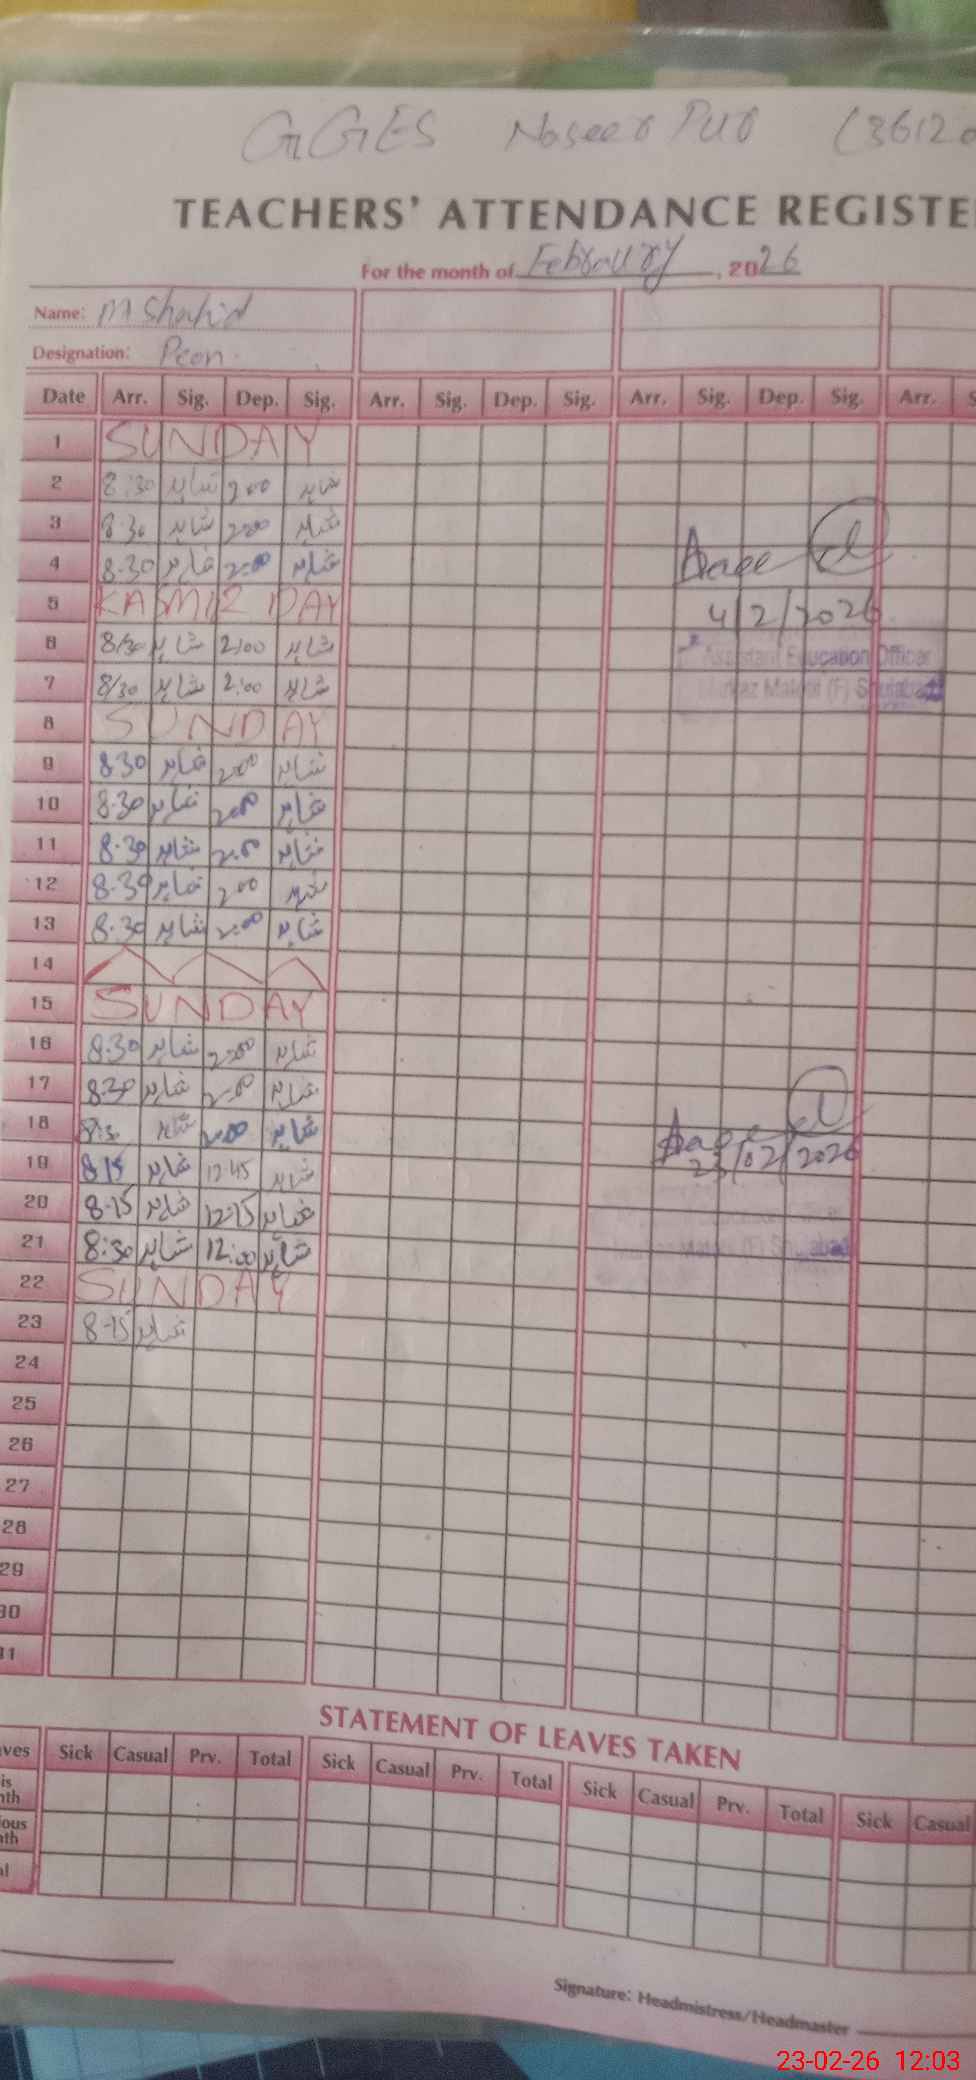 GGES Naseer Pur (3612
TEACHERS' ATTENDANCE REGISTE
For the month of Februury, 2026
Name: M Shahid
Designation: Peon.
Date Arr. Sig. Dep. Sig. Arr. Sig. Dep. Sig. Arr. Sig. Dep. Sig. Arr. S
1 SUNDAY
2 8:30 شاہد 2:00 شاہد
3 8:30 شاہد 2:00 شاہد
4 8.30 شاہد 2:00 شاہد
5 KASMIR DAY
4/2/2026
6 8/30 شاہد 2:00 شاہد
Assistant Education Officer
7 8/30 شاہد 2:00 شاہد
Markaz (F) Shujabad
8 SUNDAY
9 830 شاہد 2:00 شاہد
10 8.30 شاہد 2:00 شاہد
11 8.30 شاہد 2:00 شاہد
12 8.30 شاہد 200 شاہد
13 8.30 شاہد 2:00 شاہد
14
15 SUNDAY
16 8.30 شاہد 2:00 شاہد
17 8.30 شاہد 2:00 شاہد
18 8:30 شاہد 2:00 شاہد
19 815 شاہد 12:45 شاہد
23/02/2026
20 8-15 شاہد 12:15 شاہد
21 8:30 شاہد 12:00 شاہد
22 SUNDAY
23 8-15 شاہد
24
25
26
27
28
29
30
31
STATEMENT OF LEAVES TAKEN
ves Sick Casual Prv. Total Sick Casual Prv. Total Sick Casual Prv. Total Sick Casual
is
nth
ious
nth
al
Signature: Headmistress/Headmaster
23-02-26 12:03